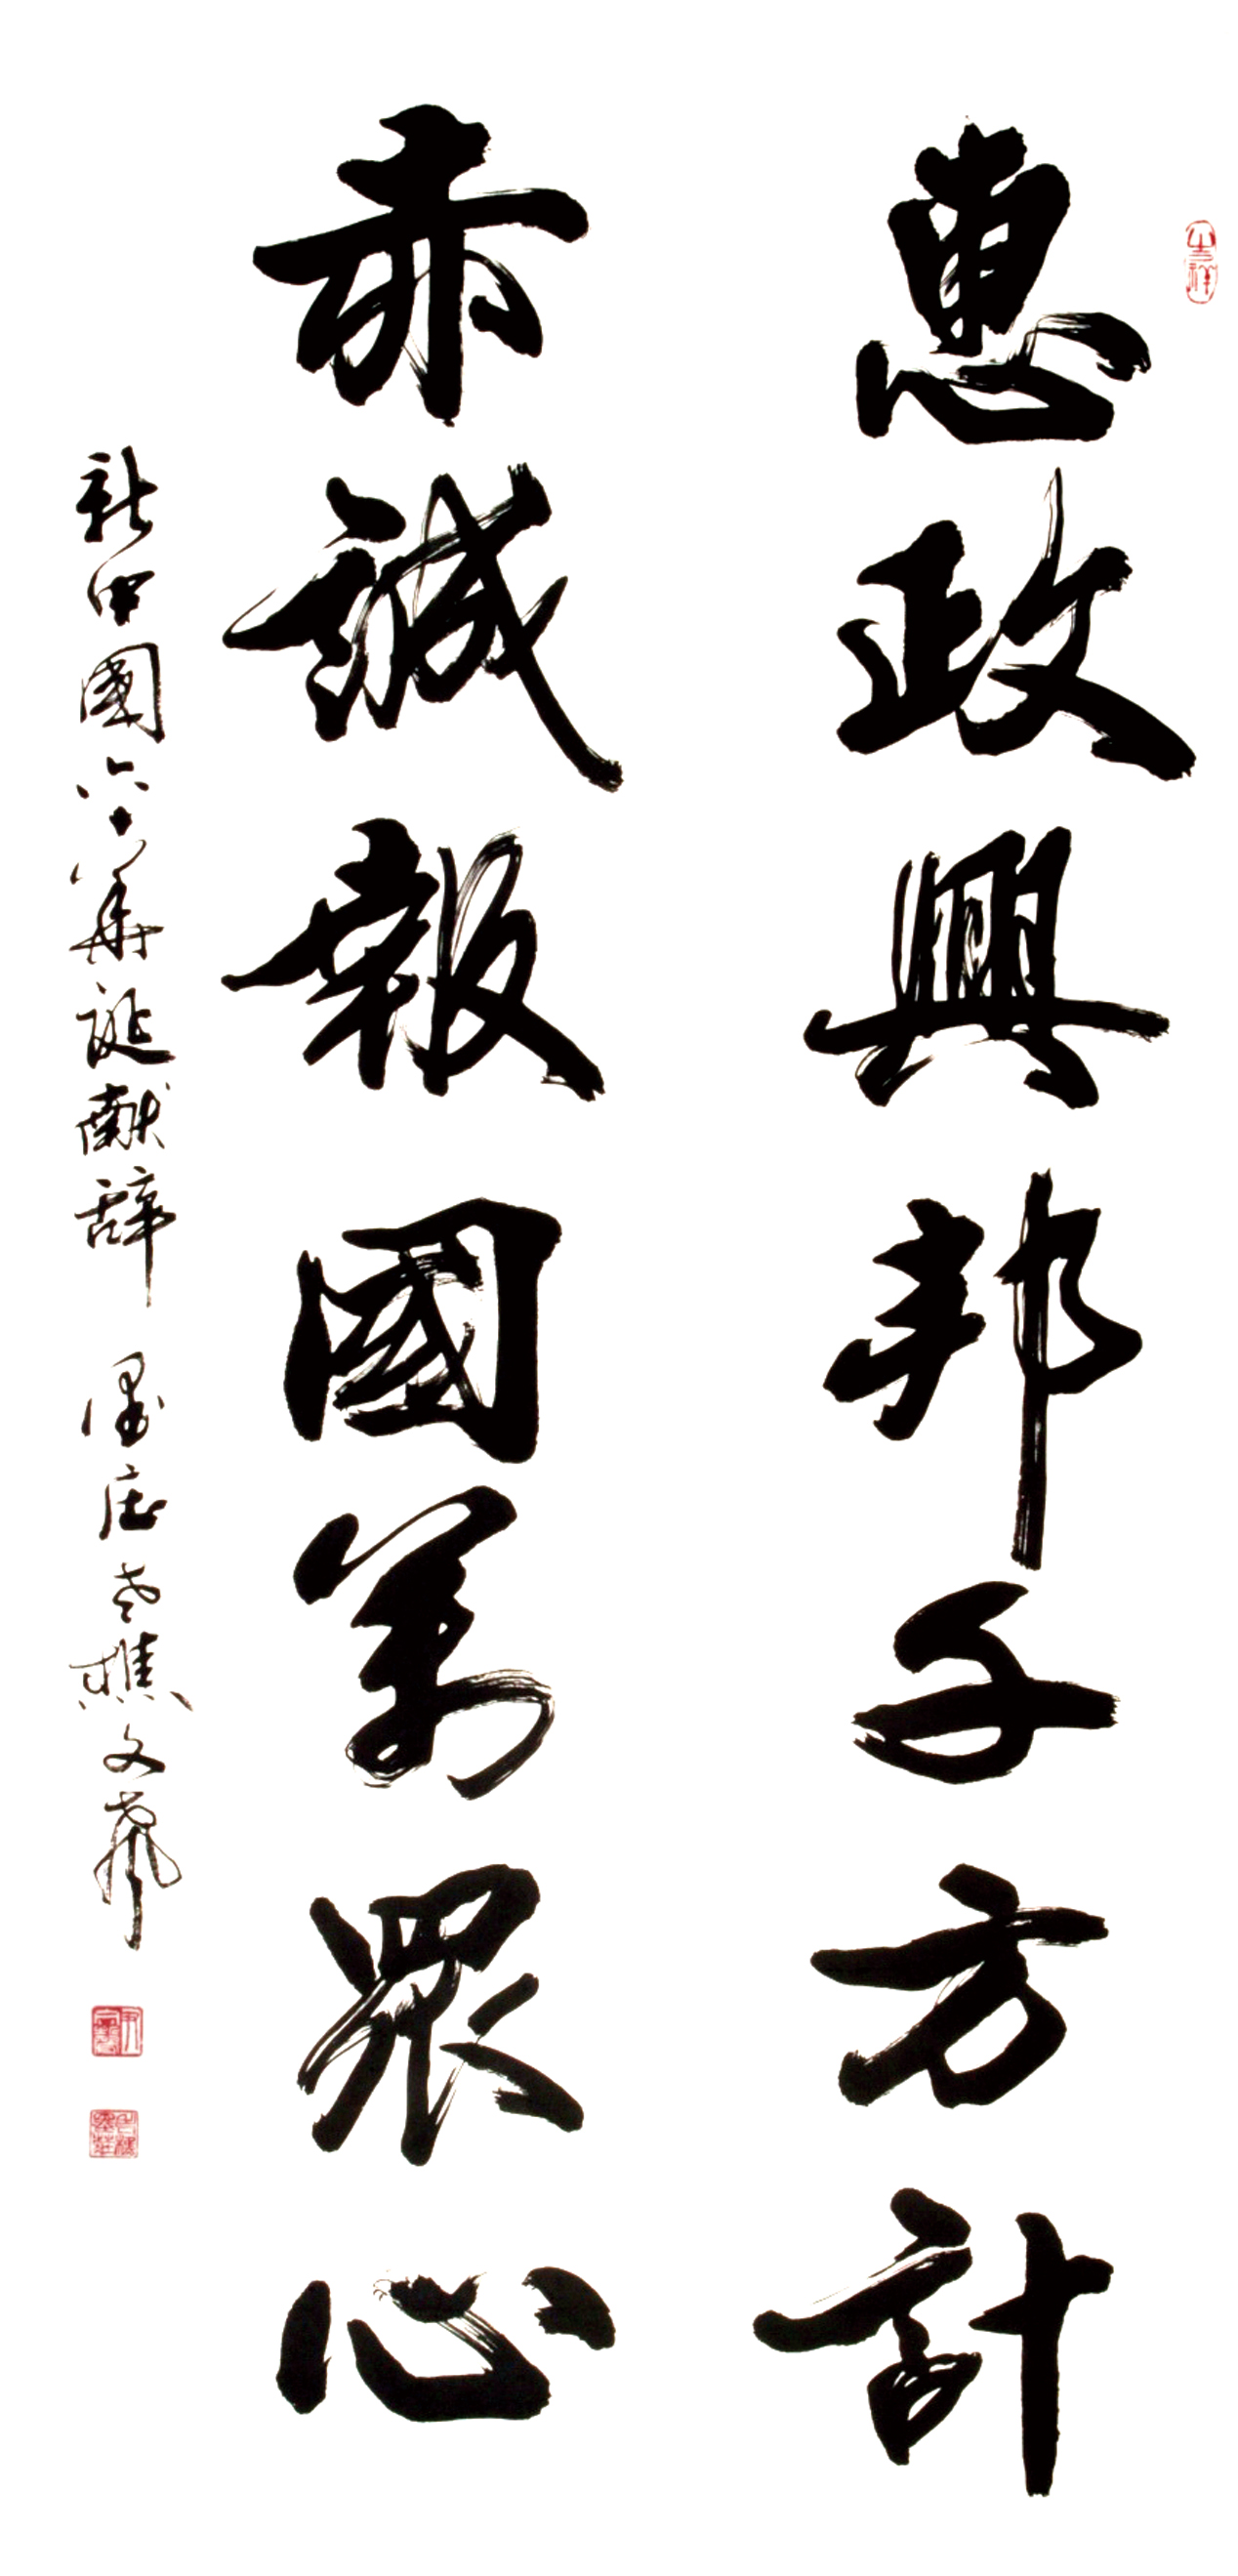 惠政興邦千方計
赤誠報國萬眾心
新中國六十華誕獻辭 墨莊老樵文